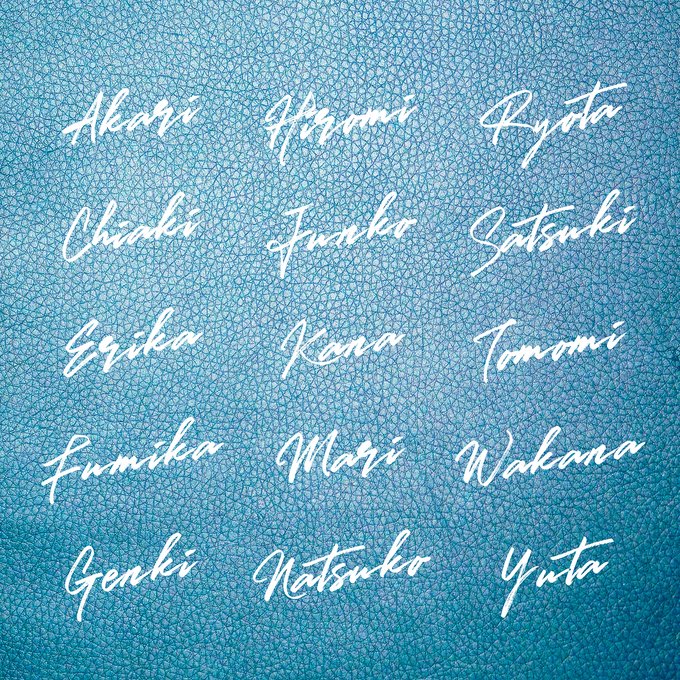 Akari Hiromi Ryota
Chiaki Junko Satsuki
Erika Kana Tomomi
Fumika Mari Wakana
Genki Natsuko Yuta